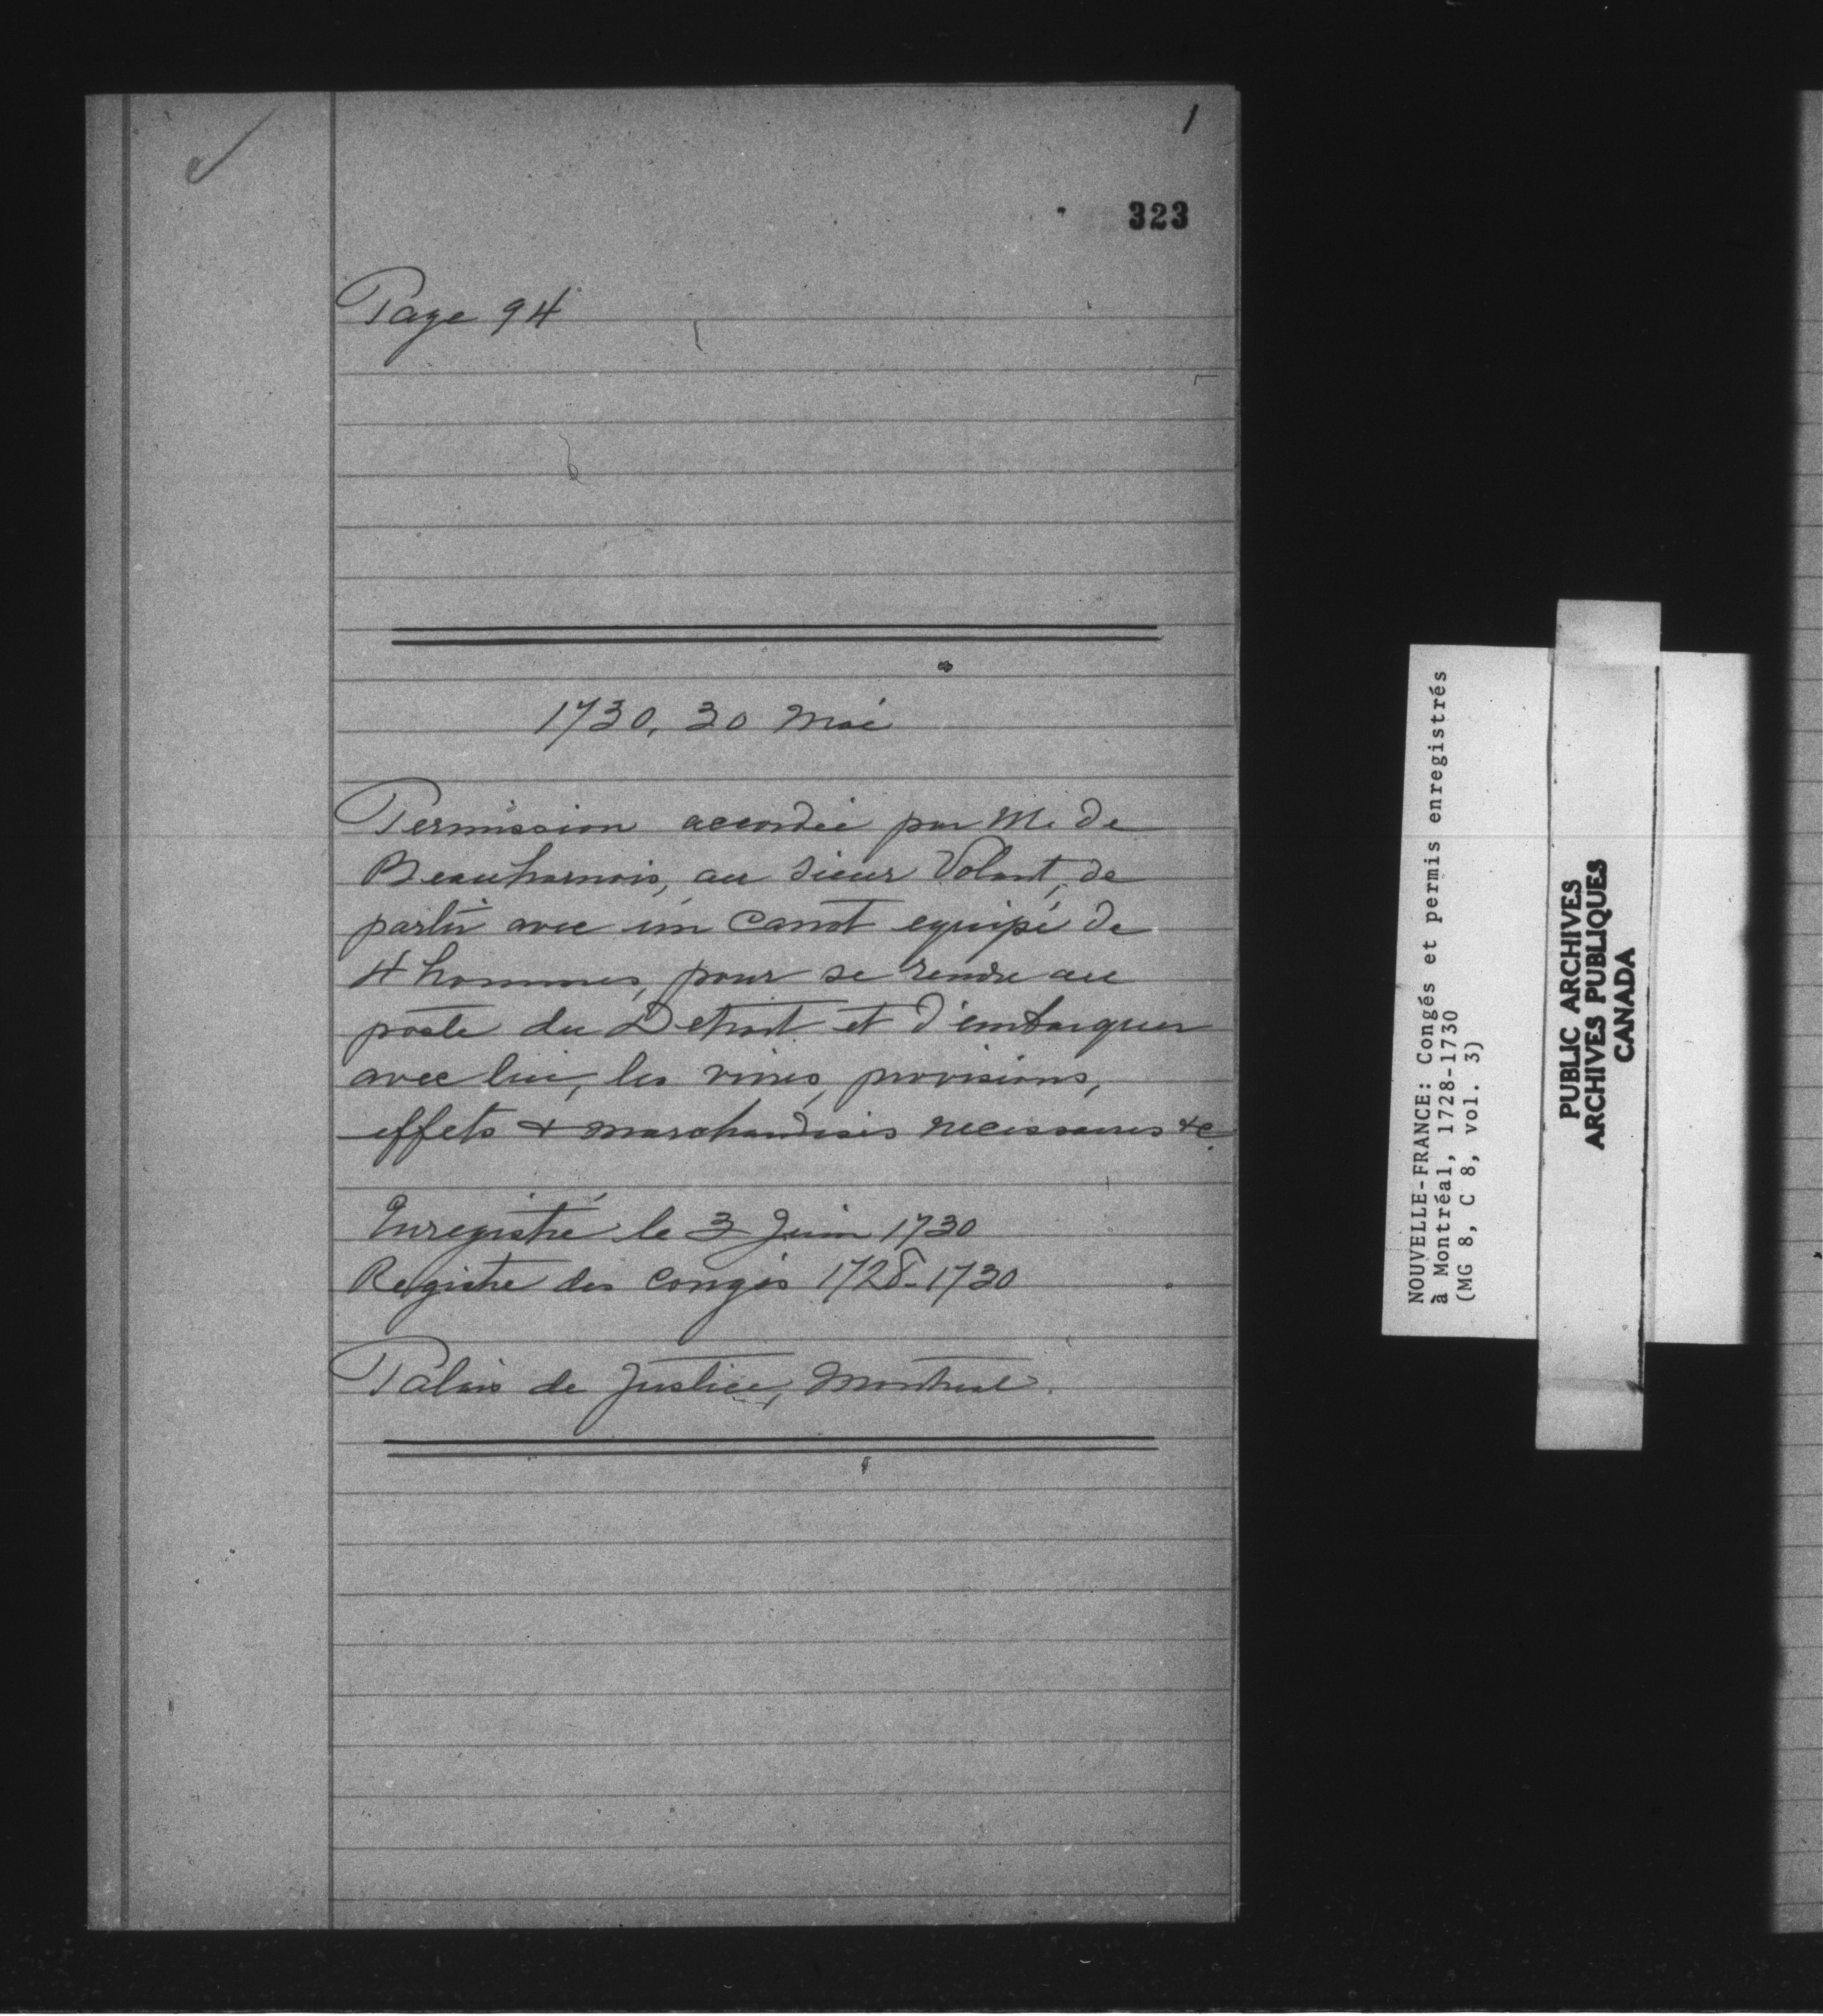 1
323
Page 94
1730, 30 Mai
Permission accordée par M. de
Beauharnois, au Sieur Volant, de
partir avec un Canot equipé de
4 hommes, pour se rendre au
poste du Detroit et d'embarquer
avec lui, les vivres, provisions,
effets & marchandises necessaires &c
Enregistré le 3 Juin 1730
Registre des Congés 1728-1730
Palais de Justice, Montreal.
NOUVELLE-FRANCE: Congés et permis enregistrés
à Montréal, 1728-1730
(MG 8, C 8, vol. 3)
PUBLIC ARCHIVES
ARCHIVES PUBLIQUES
CANADA